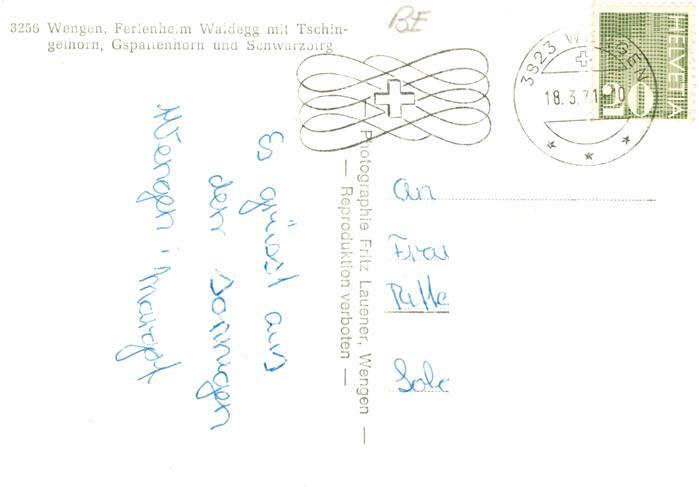 3256 Wengen, Ferienheim Waldegg mit Tschin-
gelhorn, Gspaltenhorn und Schwarzbirg
BE
3823 WENGEN
18.3.71
HELVETIA
Photographie Fritz Lauener, Wengen
— Reproduktion verboten —
Es grüsst aus
dem sonnigen
Wengen
An
Frau